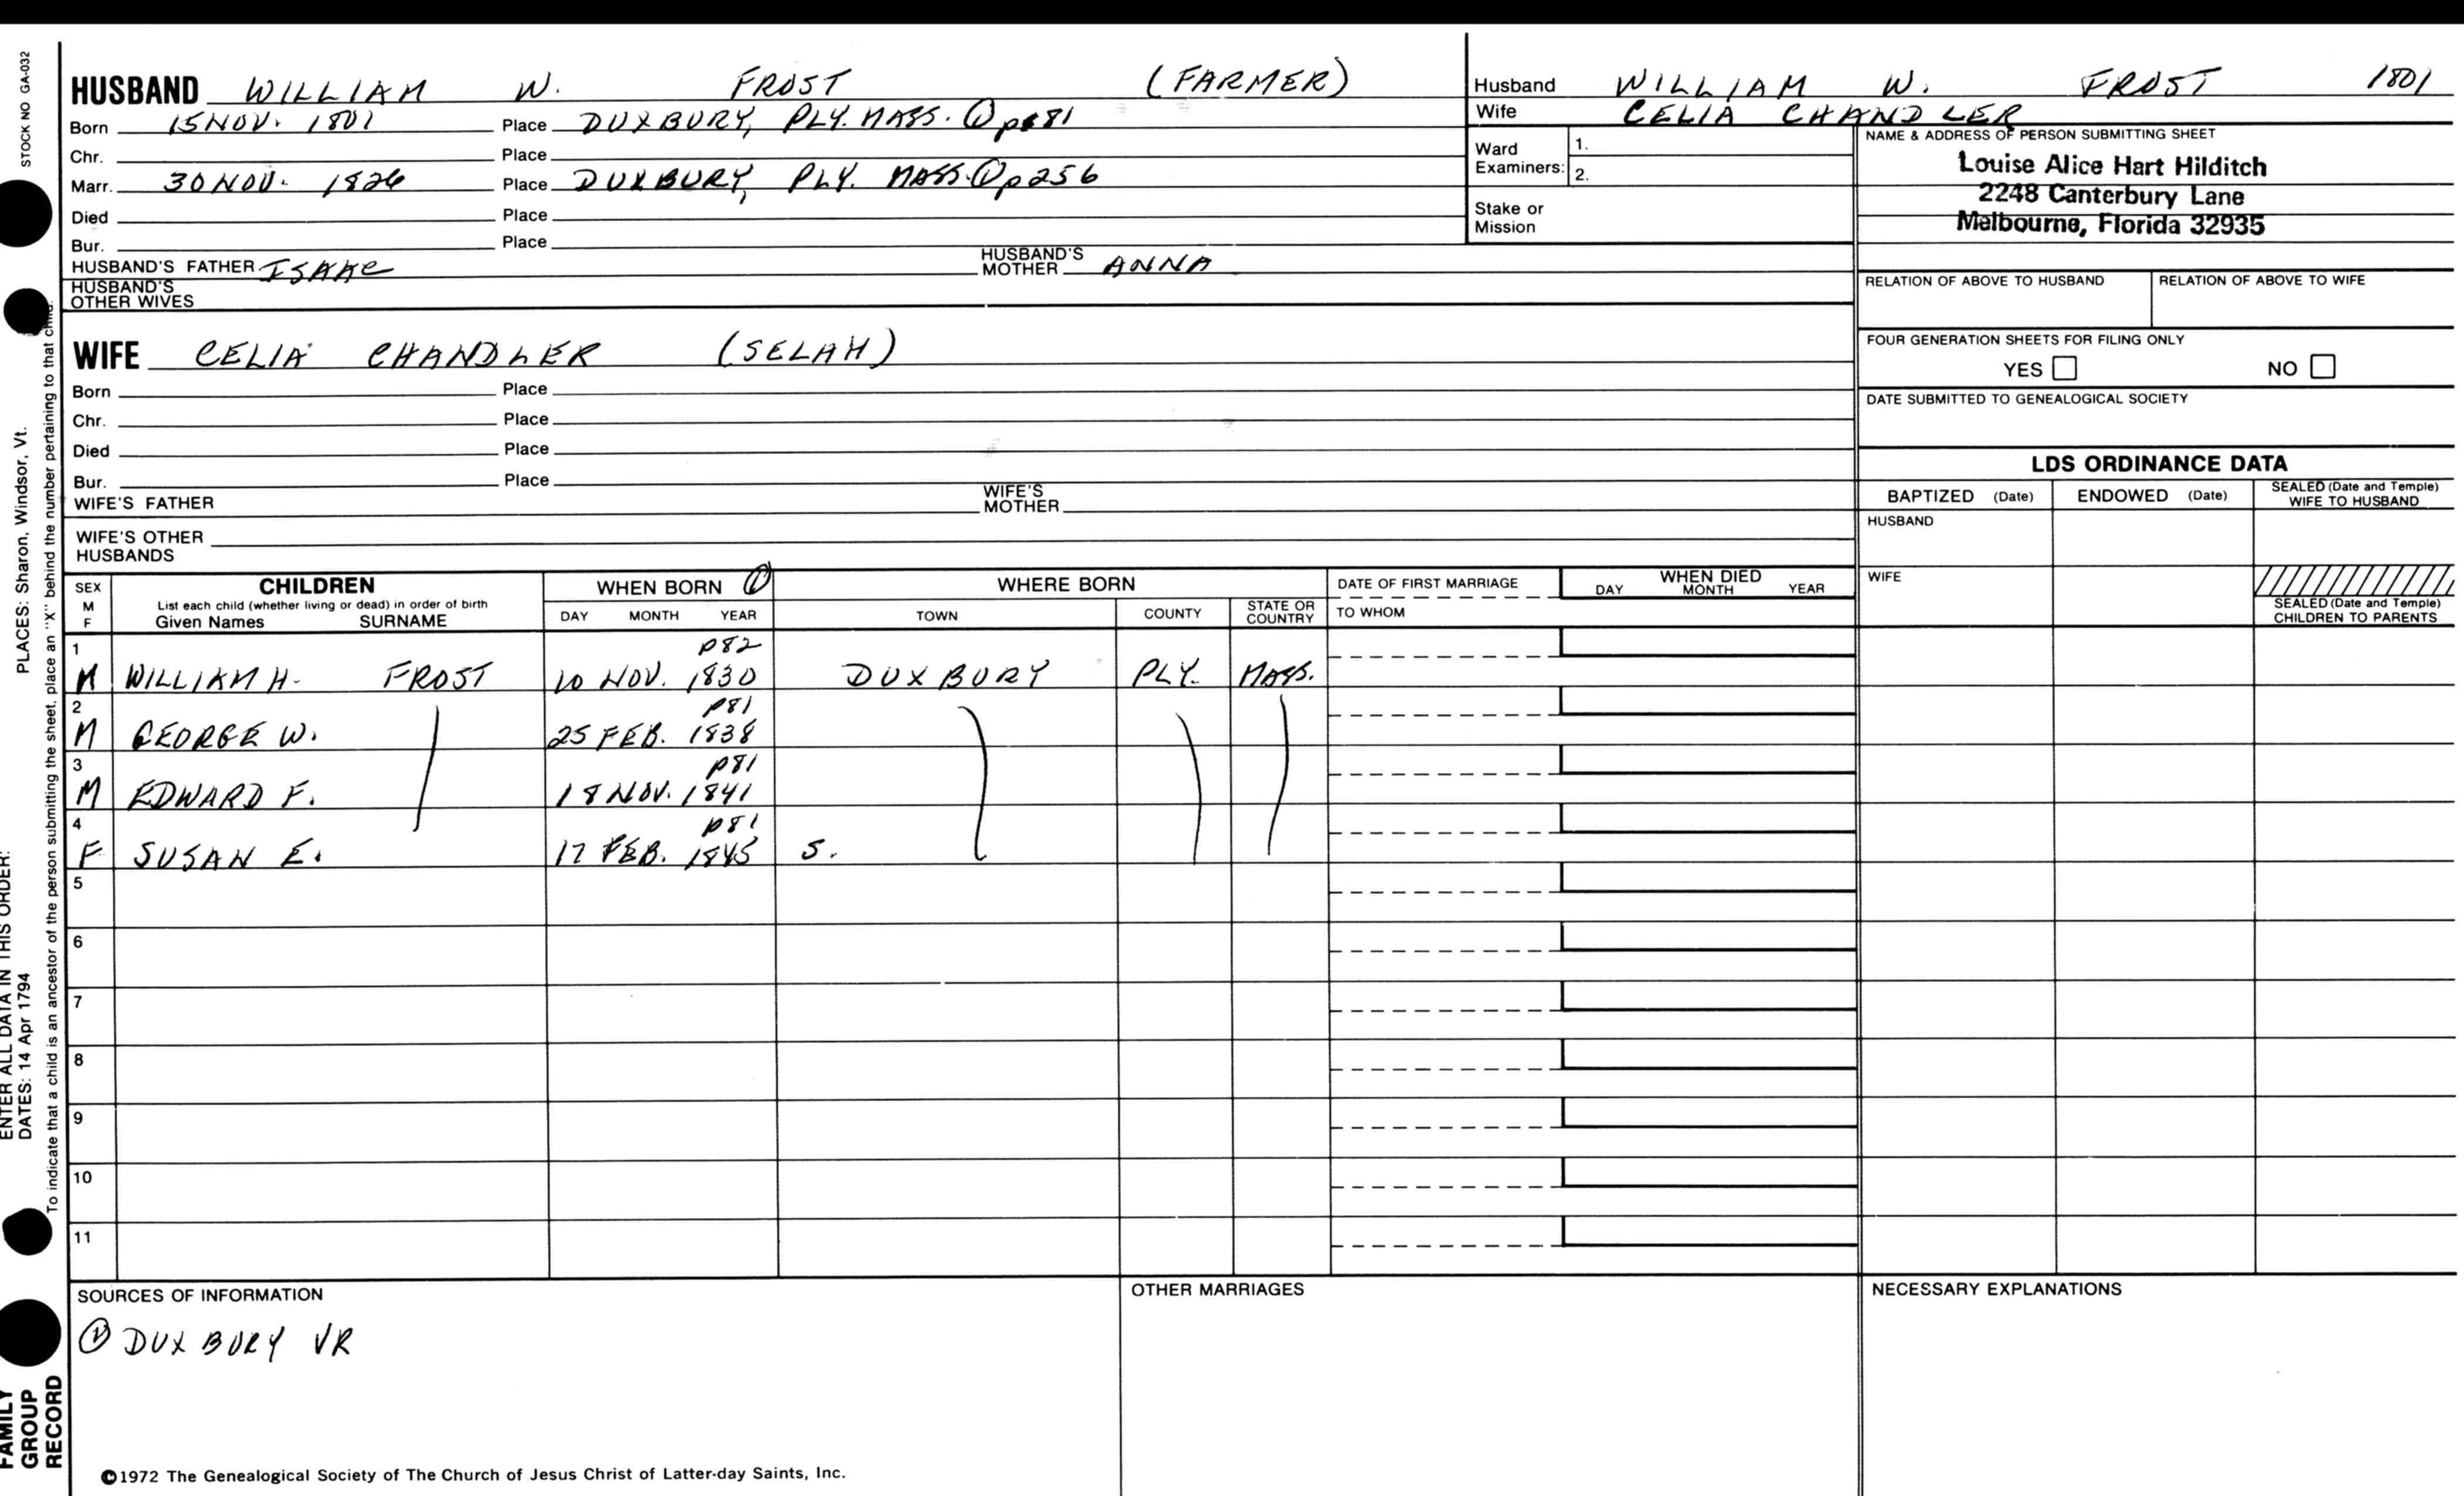 STOCK NO GA-032
HUSBAND WILLIAM W. FROST (FARMER)
Born 15 NOV. 1801 Place DUXBURY, PLY. MASS. ① p 81
Chr. Place
Marr. 30 NOV. 1826 Place DUXBURY, PLY. MASS. ① p 256
Died Place
Bur. Place
HUSBAND'S FATHER ISAAC HUSBAND'S MOTHER ANNA
HUSBAND'S OTHER WIVES
Husband WILLIAM W. FROST 1801
Wife CELIA CHANDLER
Ward Examiners: 1.
2.
Stake or Mission
NAME & ADDRESS OF PERSON SUBMITTING SHEET
Louise Alice Hart Hilditch
2248 Canterbury Lane
Melbourne, Florida 32935
RELATION OF ABOVE TO HUSBAND RELATION OF ABOVE TO WIFE
FOUR GENERATION SHEETS FOR FILING ONLY
YES NO
DATE SUBMITTED TO GENEALOGICAL SOCIETY
WIFE CELIA CHANDLER (SELAH)
Born Place
Chr. Place
Died Place
Bur. Place
WIFE'S FATHER WIFE'S MOTHER
WIFE'S OTHER HUSBANDS
LDS ORDINANCE DATA
BAPTIZED (Date) ENDOWED (Date) SEALED (Date and Temple) WIFE TO HUSBAND
HUSBAND
WIFE
SEALED (Date and Temple) CHILDREN TO PARENTS
SEX M F
CHILDREN
List each child (whether living or dead) in order of birth
Given Names SURNAME
WHEN BORN ①
DAY MONTH YEAR
WHERE BORN
TOWN COUNTY STATE OR COUNTRY
DATE OF FIRST MARRIAGE
TO WHOM
WHEN DIED
DAY MONTH YEAR
1 p82
M WILLIAM H. FROST 10 NOV. 1830 DUXBURY PLY. MASS.
2 p81
M GEORGE W. 25 FEB. 1838
3 p81
M EDWARD F. 18 NOV. 1841
4 p81
F SUSAN E. 17 FEB. 1845 S.
5
6
7
8
9
10
11
SOURCES OF INFORMATION
① DUXBURY VR
OTHER MARRIAGES
NECESSARY EXPLANATIONS
©1972 The Genealogical Society of The Church of Jesus Christ of Latter-day Saints, Inc.
FAMILY GROUP RECORD
ENTER ALL DATA IN THIS ORDER:
DATES: 14 Apr 1794
PLACES: Sharon, Windsor, Vt.
To indicate that a child is an ancestor of the person submitting the sheet, place an "X" behind the number pertaining to that child.